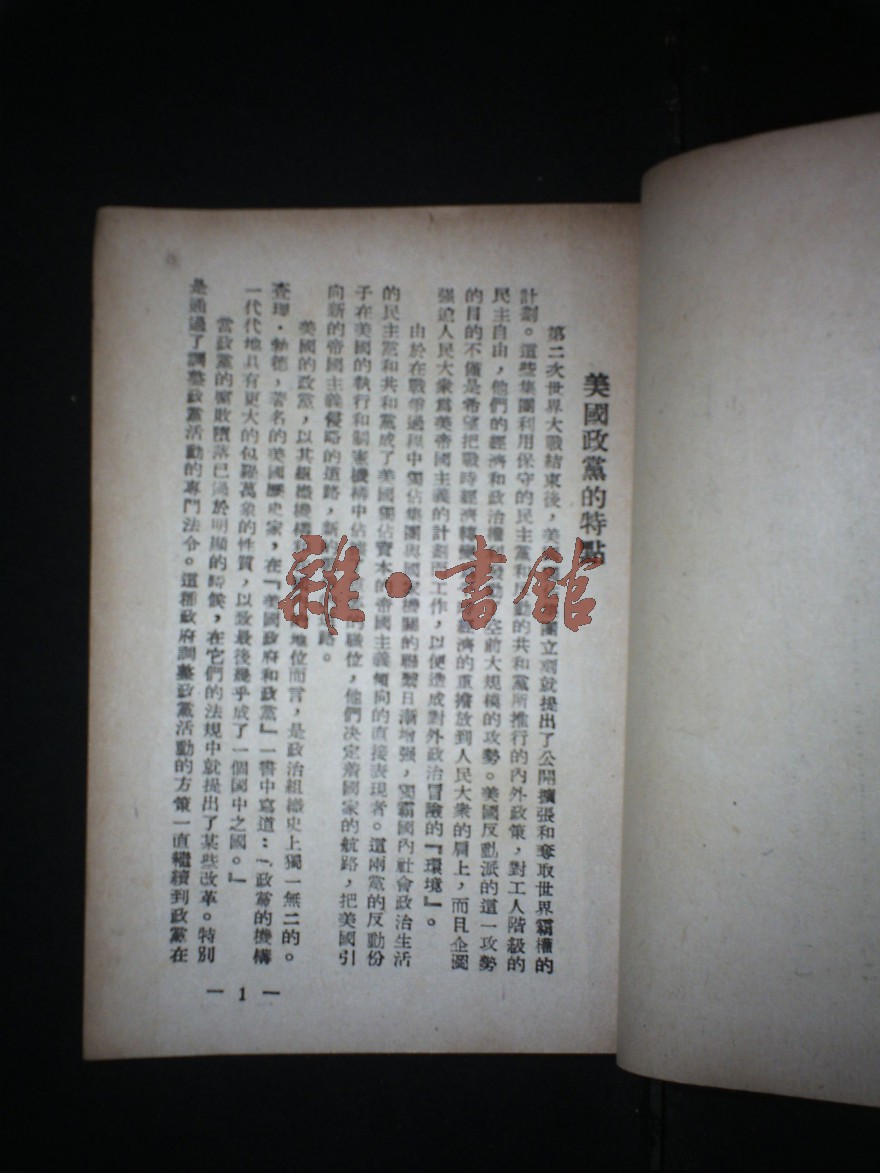 美國政黨的特點
第二次世界大戰結束後，美 團立刻就提出了公開擴張和奪取世界霸權的
計劃。這些集團利用保守的民主黨和 動的共和黨所推行的內外政策，對工人階級的
民主自由，他們的經濟和政治權 空前大規模的攻勢。美國反動派的這一攻勢
的目的不僅是希望把戰時經濟轉變 經濟的重擔放到人民大衆的肩上，而且企圖
强迫人民大衆爲美帝國主義的計劃而工作，以便造成對外政治冒險的『環境』。
由於在戰爭過程中獨佔集團與國家機關的聯繫日漸增强，獨霸國內社會政治生活
的民主黨和共和黨成了美國獨佔資本的帝國主義傾向的直接表現者。這兩黨的反動份
子在美國的執行和制憲機構中佔據 的職位，他們决定着國家的航路，把美國引
向新的帝國主義侵略的道路，新的 路。
美國的政黨，以其組織機構和 地位而言，是政治組織史上獨一無二的。
查理·勃德，著名的美國歷史家，在『美國政府和政黨』一書中寫道：『政黨的機構
一代代地具有更大的包羅萬象的性質，以致最後幾乎成了一個國中之國。』
當政黨的腐敗墮落已過於明顯的時候，在它們的法規中就提出了某些改革。特別
是通過了調整政黨活動的專門法令。這種政府調整政黨活動的方策一直繼續到政黨在
— 1 —
雜·書館